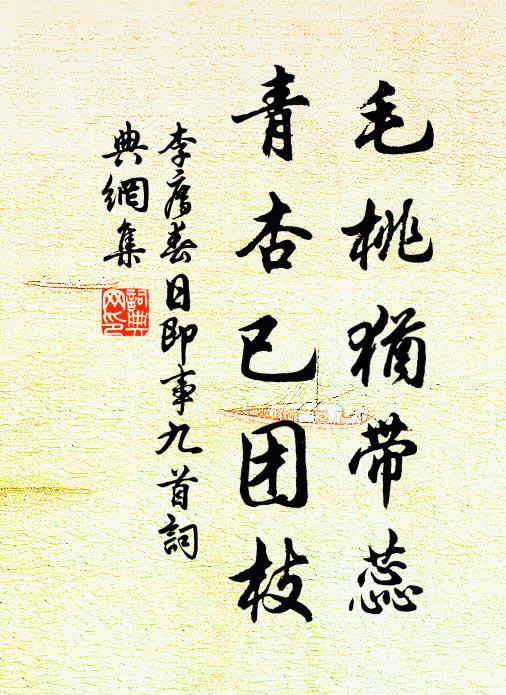 毛桃犹带蕊
青杏已团枝
李廌春日即事九首詞
典網集
詞典
网印